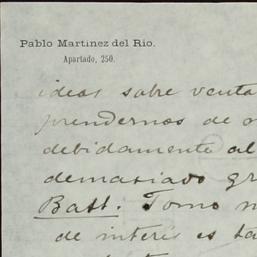 Pablo Martinez del Rio.
Apartado, 250.
ideas sobre venta
prendernos de
debidamente al
demasiado gr
Batt: Tomo
de interés es ta